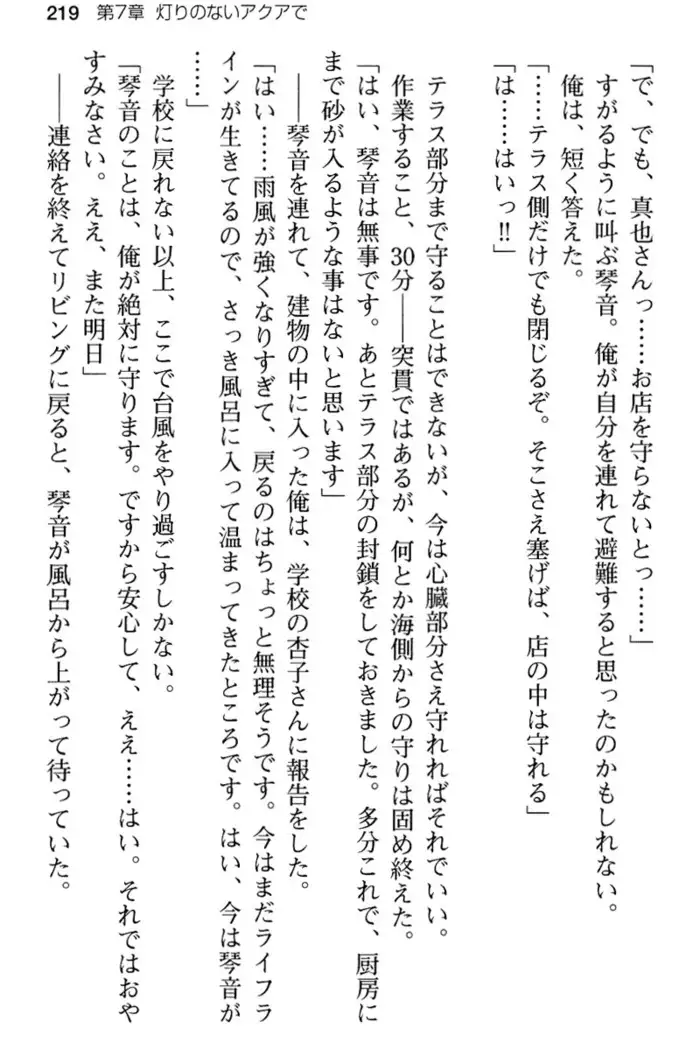 219 第7章 灯りのないアクアで
「で、でも、真也さんっ……お店を守らないとっ……」
すがるように叫ぶ琴音。俺が自分を連れて避難すると思ったのかもしれない。
俺は、短く答えた。
「……テラス側だけでも閉じるぞ。そこさえ塞げば、店の中は守れる」
「は……はいっ!!」
テラス部分まで守ることはできないが、今は心臓部分さえ守れればそれでいい。
作業すること、30分――突貫ではあるが、何とか海側からの守りは固め終えた。
「はい、琴音は無事です。あとテラス部分の封鎖をしておきました。多分これで、厨房に
まで砂が入るような事はないと思います」
――琴音を連れて、建物の中に入った俺は、学校の杏子さんに報告をした。
「はい……雨風が強くなりすぎて、戻るのはちょっと無理そうです。今はまだライフラ
インが生きてるので、さっき風呂に入って温まってきたところです。はい、今は琴音が
……」
学校に戻れない以上、ここで台風をやり過ごすしかない。
「琴音のことは、俺が絶対に守ります。ですから安心して、ええ……はい。それではおや
すみなさい。ええ、また明日」
――連絡を終えてリビングに戻ると、琴音が風呂から上がって待っていた。